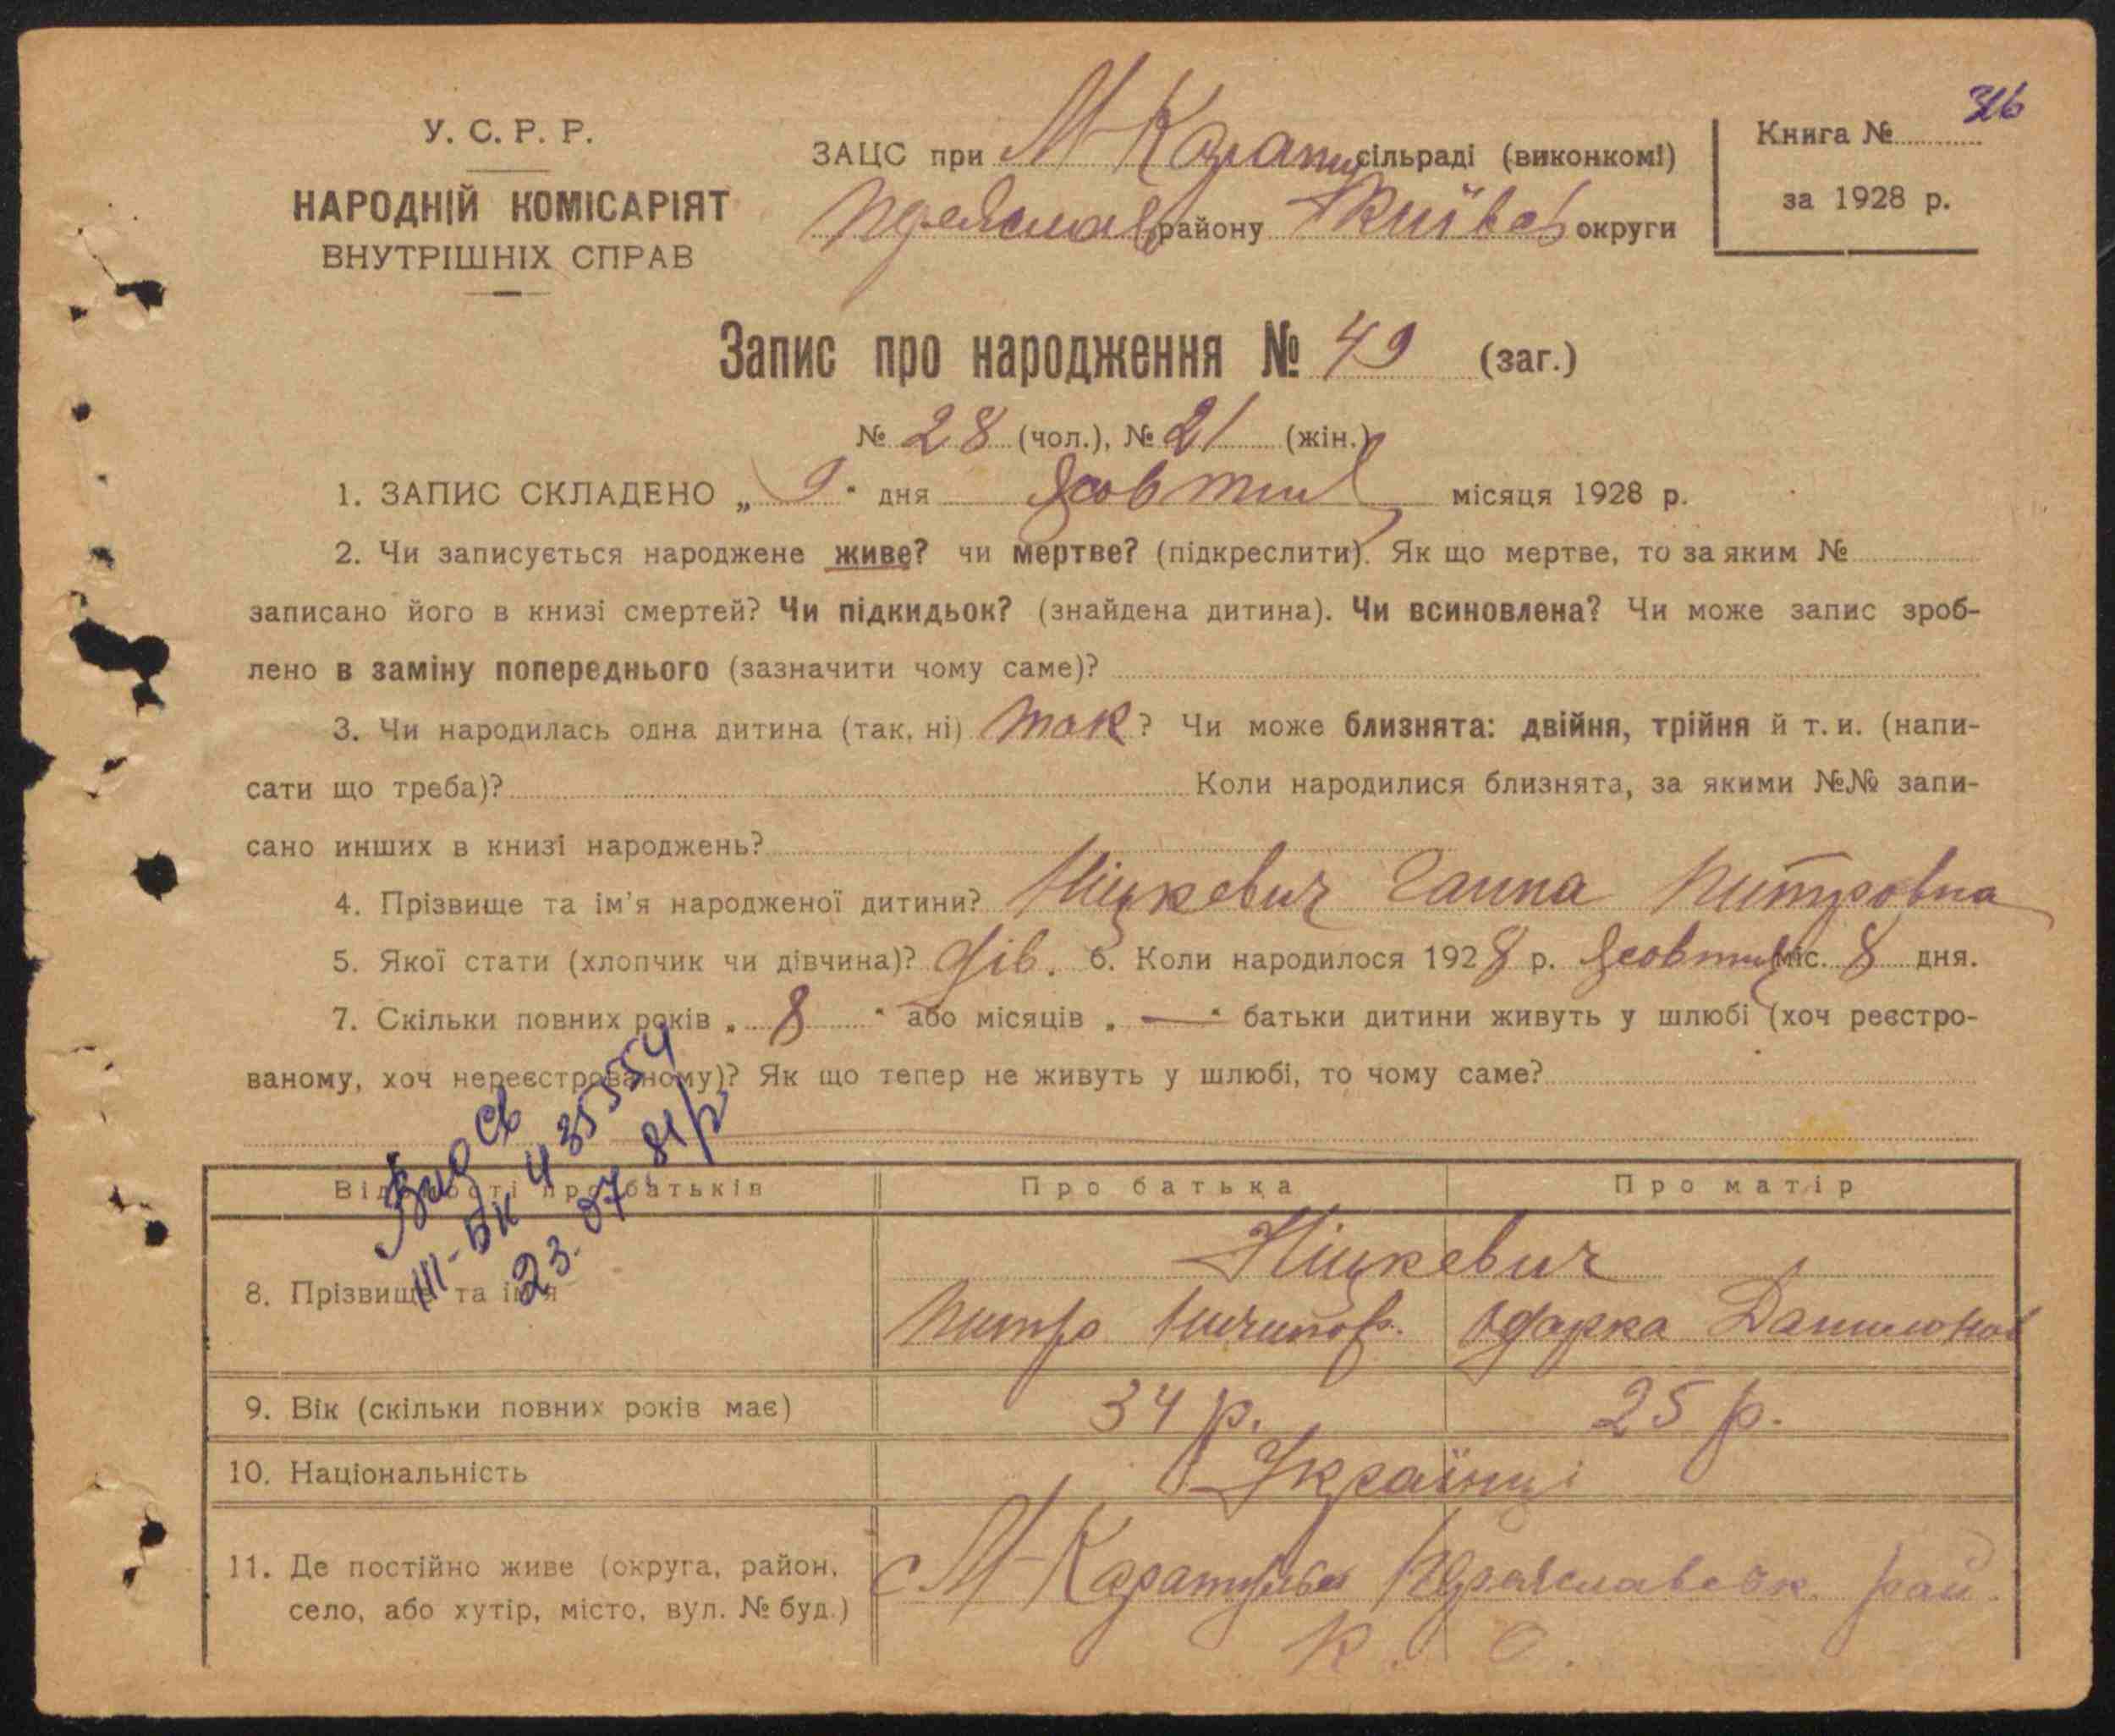 316
У. С. Р. Р.
НАРОДНІЙ КОМІСАРІЯТ
ВНУТРІШНІХ СПРАВ
ЗАЦС при М Карат сільраді (виконкомі)
району Київсь округи
Книга №
за 1928 р.
Запис про народження № 49 (заг.)
№ 28 (чол.), № 21 (жін.)
1. ЗАПИС СКЛАДЕНО „ 9 " дня Жовтня місяця 1928 р.
2. Чи записується народжене живе? чи мертве? (підкреслити). Як що мертве, то за яким №
записано його в книзі смертей? Чи підкидьок? (знайдена дитина). Чи всиновлена? Чи може запис зроб-
лено в заміну попереднього (зазначити чому саме)?
3. Чи народилась одна дитина (так, ні) так ? Чи може близнята: двійня, трійня й т. и. (напи-
сати що треба)? Коли народилися близнята, за якими №№ запи-
сано инших в книзі народжень?
4. Прізвище та ім'я народженої дитини? Ніцкевич Ганна Питровна
5. Якої стати (хлопчик чи дівчина)? Дів. 6. Коли народилося 1928 р. Жовтня міс. 8 дня.
7. Скільки повних років „ 8 " або місяців „ — " батьки дитини живуть у шлюбі (хоч реєстро-
ваному, хоч нереєстрованому)? Як що тепер не живуть у шлюбі, то чому саме?
Вид св
III-БК 4 35554
23.07.81 р
Відомості про батьків Про батька Про матір
8. Прізвище та ім'я Ніцкевич
Питро Ничипор. Одарка Данилов
9. Вік (скільки повних років має) 34 р. 25 р.
10. Національність Українці
11. Де постійно живе (округа, район, с М-Каратуль Переяславськ. рай.
село, або хутір, місто, вул. № буд.) К. О.